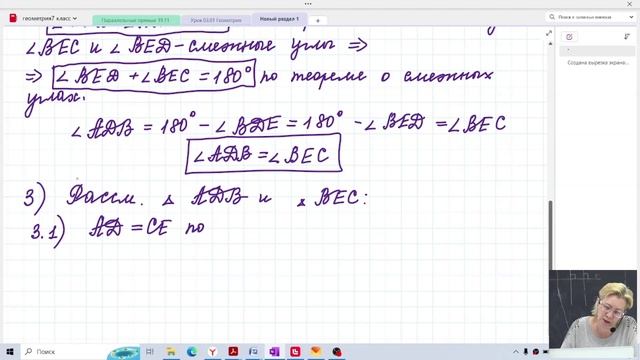 геометрия7 класс
Параллельные прямые 19.11
Урок 03.03 Геометрия
Новый раздел 1
Поиск в записных книжках
Создана вырезка экрана...
∠BEC и ∠BED - смежные углы ⇒
⇒ ∠BED + ∠BEC = 180° по теореме о смежных
углах.
∠ADB = 180° - ∠BDE = 180° - ∠BED = ∠BEC
∠ADB = ∠BEC
3) Рассм. △ ADB и △ BEC:
3.1) AD = CE по
Поиск